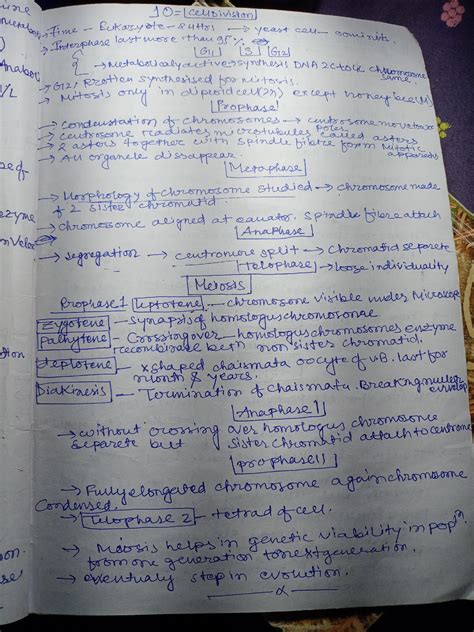 10 = Cell Division
→ Time - Eukaryote - 24Hrs → yeast cell - 90 mints
→ Interphase last more than 95%
G1 S G2
→ Metabolically active → synthesis DNA 2c to 4c chromosome same.
→ G2, Protien synthesised for Mitosis.
→ Mitosis only in diploid cell (2n) except honey bee (M)
Prophase
→ Condenstation of chromosomes → centrosome move to
→ Centrosome radiates microtubules called asters
→ 2 asters together with spindle fibre form Mitotic apparatus
→ All organele dissappear.
Metaphase
→ Morphology of chromosome studied → chromosome made
of 2 sister chromatid.
→ Chromosome aligned at equator. Spindle fibre attach
Anaphase
→ segregation → centromere split → Chromatid seperete
Telophase → loose individuality
Meiosis
Prophase 1 leptotene - chromosome visible under Microscope
Zygotene - Synapsis of homologus chromosomae
Pachytene - Crossing over - homologus chromosomes enzyme
recombinase betn non sister chromatid.
deplotene - x shaped chaismata oocyte of VB. last for
month & years.
Diakinesis - Termination of chaismata. Breaking nuclear envelop
Anaphase 1
→ without crossing over homologus chromosome
seperete but sister chromatid attach to centrome
prophase II
→ Fully elongated chromosome again chromosome
Condensed.
→ Telophase 2 - tetrad of cell.
→ Meiosis helps in genetic viability in popn
from one generation to next generation.
→ eventualy step in evolution.